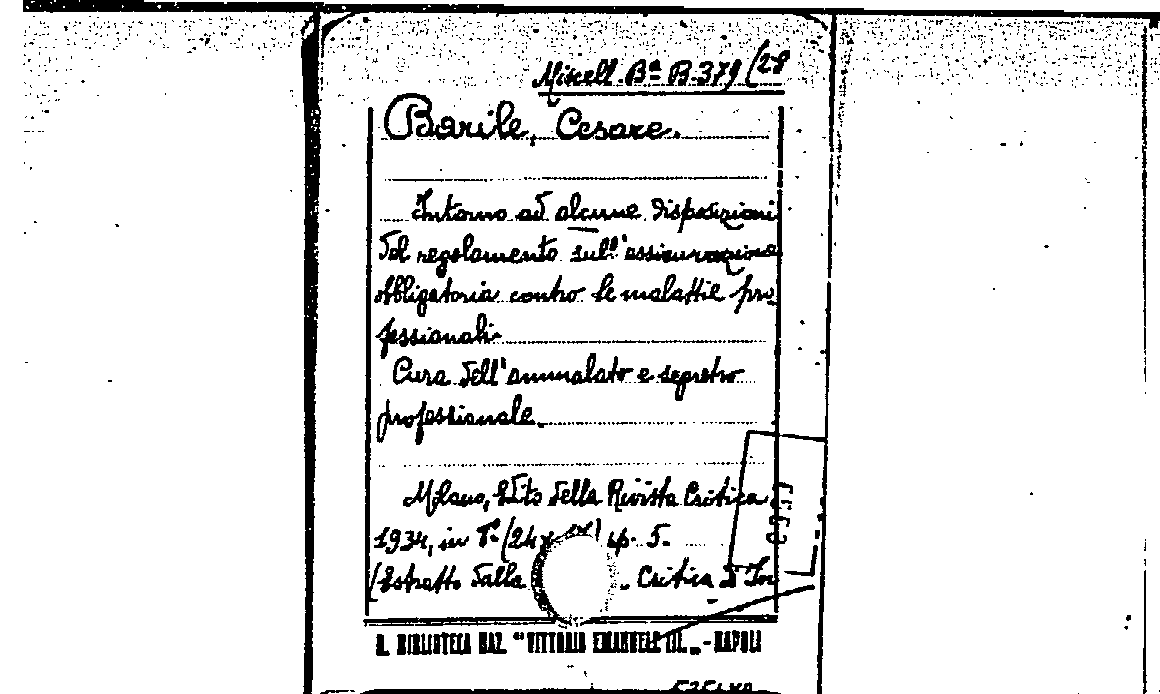 Miscell. Bª B. 379/28
Barile, Cesare.
Intorno ad alcune disposizioni
del regolamento sull'assicurazione
obbligatoria contro le malattie pro-
fessionali.
Cura dell'ammalato e segreto
professionale.
Milano, Edito della Rivista Critica
1934, in 8° (24 x ) p. 5.
(Estratto dalla . Critica d'In
R. BIBLIOTECA NAZ. "VITTORIO EMANUELE III„ - NAPOLI